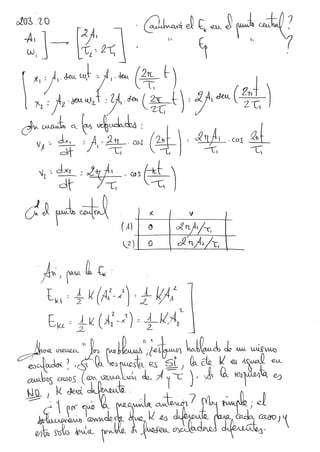 203.20
A₁
W₁ ] → [ 2A₁
T₂ = 2T₁ ] · Cambiará el Eₖ en el punto central?
" Eₚ " ?
x₁ = A₁ · sen wt = A₁ · sen (2π/T₁ t)
x₂ = A₂ · sen w₂t = 2A₁ · sen (2π/T₂ t) = 2A₁ sen (2πt/2T₁)
En cuanto a las velocidades:
v₁ = dx₁/dt = A₁ · 2π/T₁ · cos (2πt/T₁) = 2πA₁/T₁ · cos 2πt/T₁
v₂ = dx₂/dt = 2πA₁/T₁ · cos (πt/T₁)
En el punto central
x v
(1) 0 2πA₁/T₁
(2) 0 2πA₁/T₁
Así, para la Eₖ:
Eₖ₁ = 1/2 K (A₁² - x²) = 1/2 KA₁²
Eₖ₂ = 1/2 K (A₂² - x²) = 1/2 KA₂²
Ahora vienen "los problemas": ¿estamos hablando de un mismo
oscilador? · Si la respuesta es SÍ, la cte K es igual en
ambos casos (con variación de A y T). · Si la respuesta es
NO, K será diferente.
¿Y por qué la pregunta anterior? Muy simple: el
solucionario considera que K es diferente para cada caso, y
esto solo sería posible si fuesen osciladores diferentes.